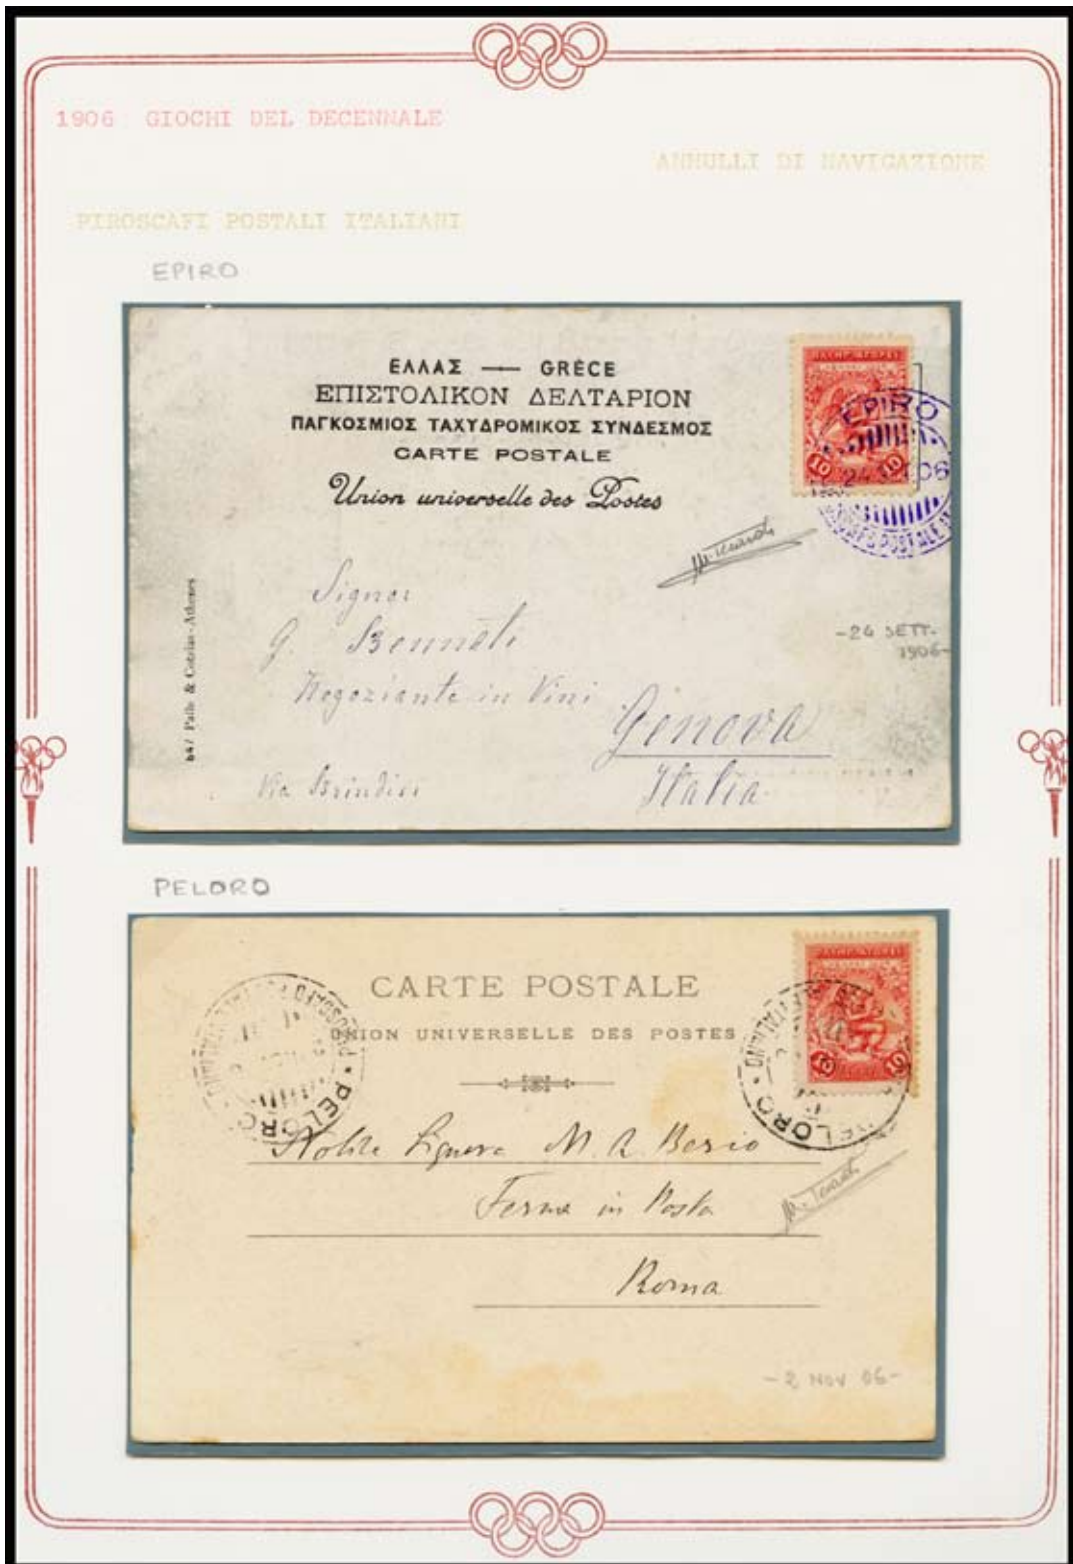 1906 GIOCHI DEL DECENNALE
ANNULLI DI NAVIGAZIONE
PIROSCAFI POSTALI ITALIANI
EPIRO
ΕΛΛΑΣ — GRÈCE
ΕΠΙΣΤΟΛΙΚΟΝ ΔΕΛΤΑΡΙΟΝ
ΠΑΓΚΟΣΜΙΟΣ ΤΑΧΥΔΡΟΜΙΚΟΣ ΣΥΝΔΕΣΜΟΣ
CARTE POSTALE
Union universelle des Postes
10 10
EPIRO
06
POSTALE
647 Pallis & Cotzias-Athènes
Signor
G. Bennati
Negoziante in Vini
Genova
Italia
Via Brindisi
-24 SETT.
1906-
PELORO
CARTE POSTALE
UNION UNIVERSELLE DES POSTES
10 10
PIROSCAFO POSTALE ITALIANO
PELORO
ITALIANO
PELORO
Nobile Signora M. A. Berio
Ferma in Posta
Roma
-2 NOV 06-